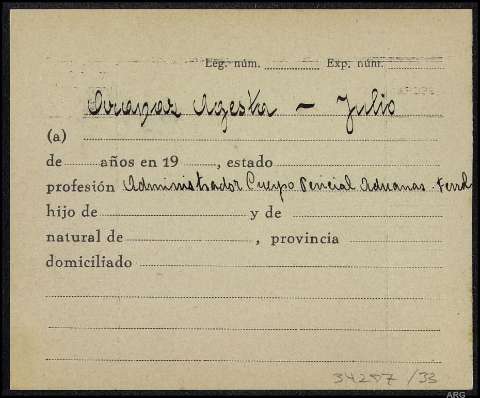 Leg. núm. Exp. núm.
Julio
(a)
de años en 19 , estado
profesión Administrador Cuerpo Pericial Aduanas.
hijo de y de
natural de , provincia
domiciliado
34287/33
ARG